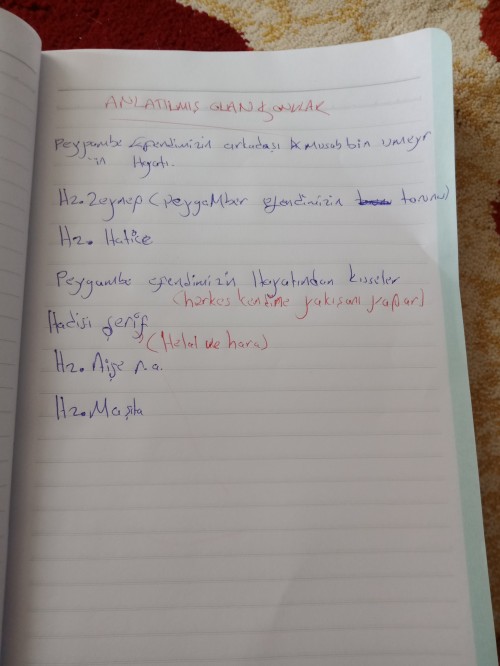 ANLATILMIŞ OLAN KONULAR
Peygambe Efendimizin arkadaşı Musab bin umeyr
in Hayatı.
Hz. Zeynep (Peygamber efendimizin torunu)
Hz. Hatice
Peygambe efendimizin Hayatından kısseler
(herkes kendine yakışanı yapar)
Hadisi şerif
(Helal ve hara)
Hz. Aişe r.a.
Hz. Maşita